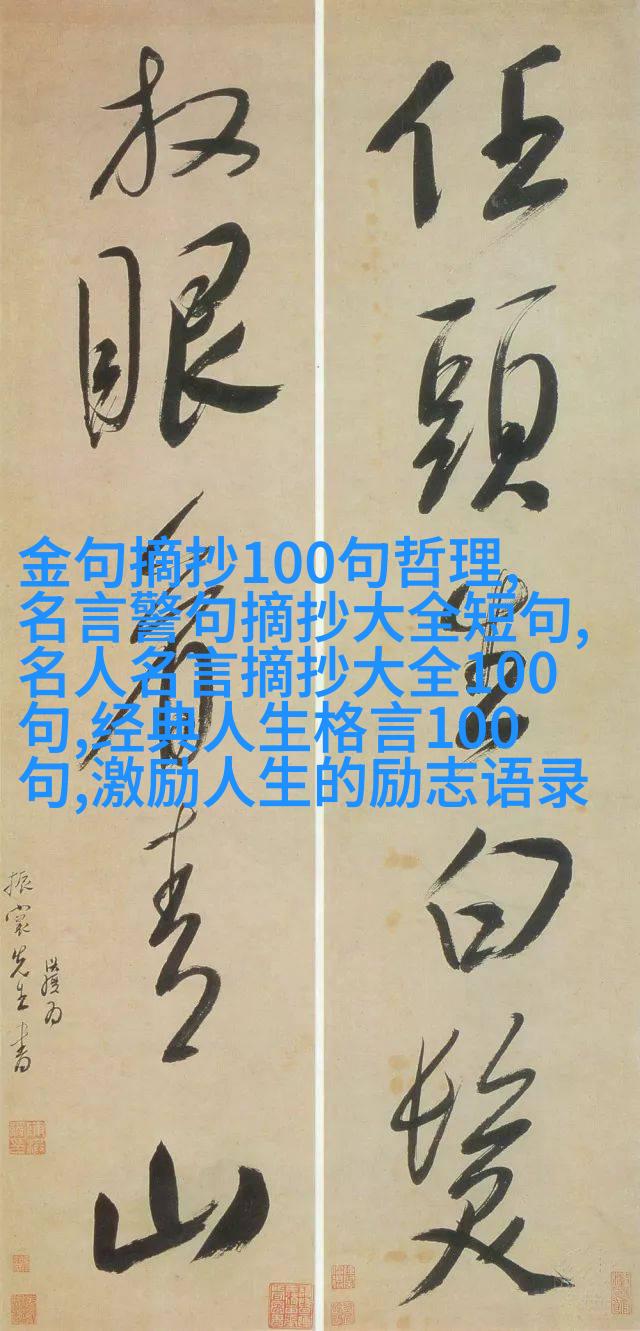 任頭生白髮
放眼看青山
先生書
金句摘抄100句哲理,
名言警句摘抄大全短句,
名人名言摘抄大全100
句,经典人生格言100
句,激励人生的励志语录